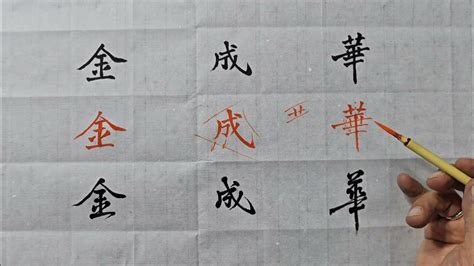 金 成 華
金 成 華
金 成 華